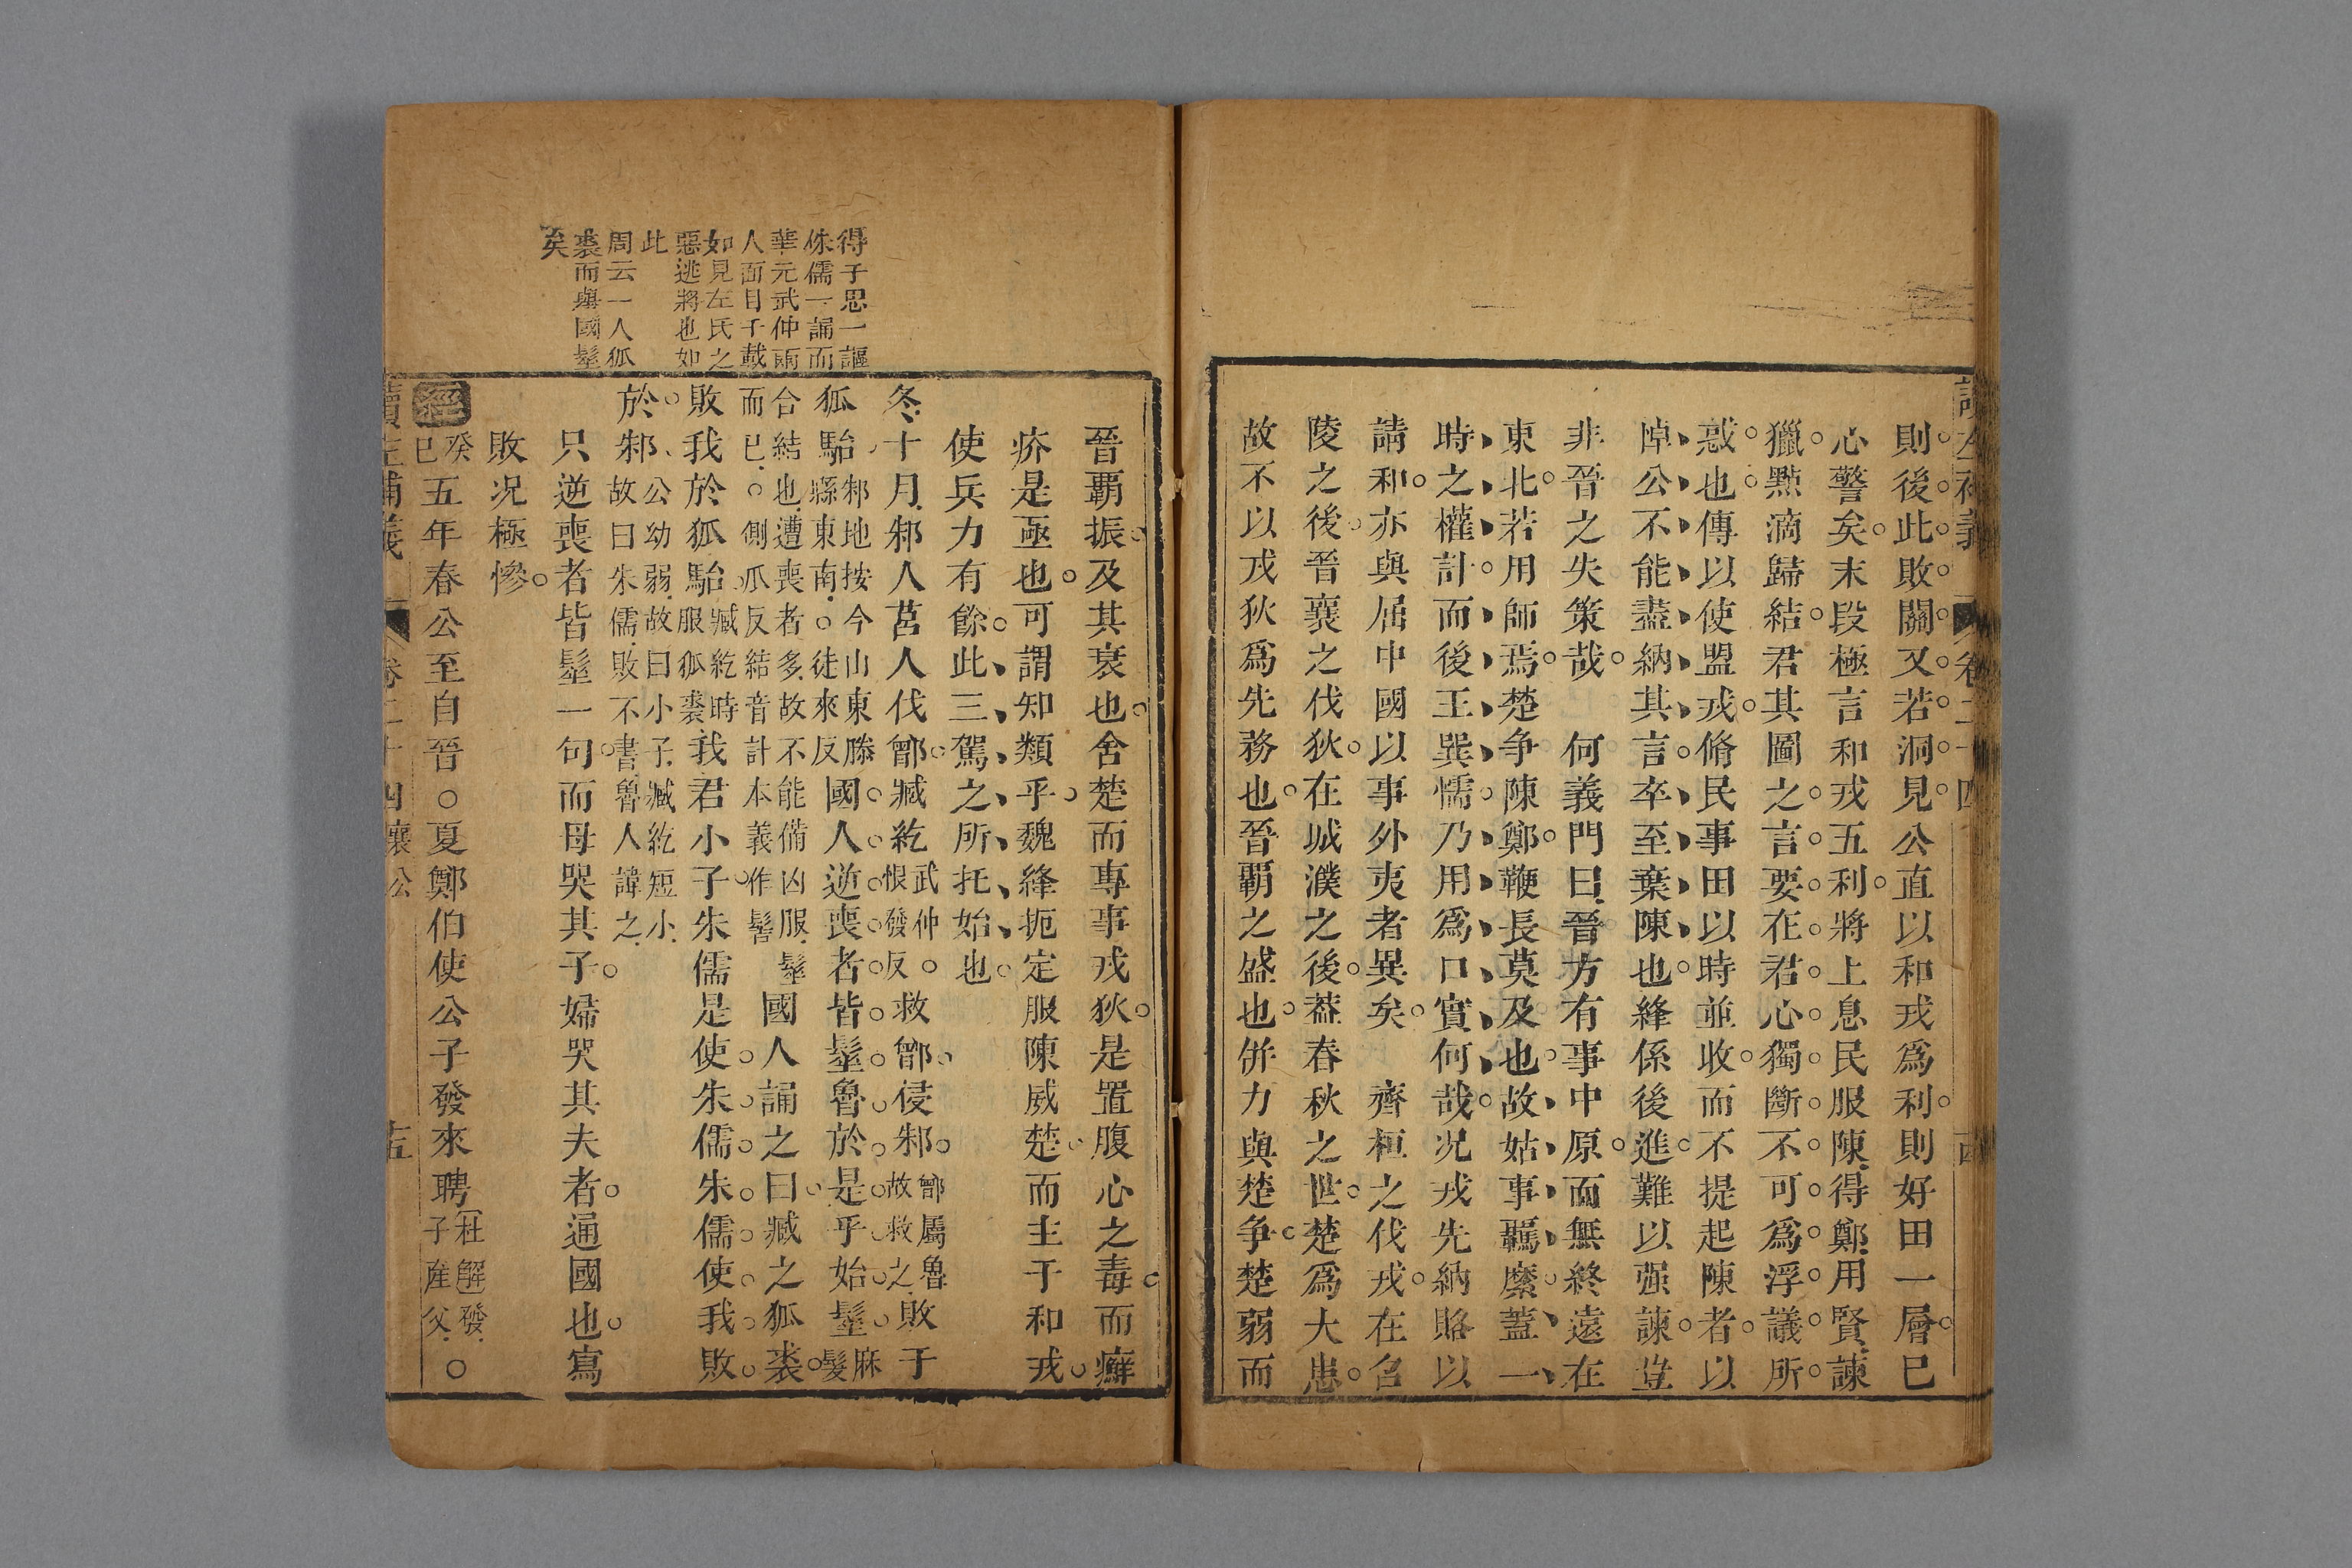 則後此敗關又若洞見公直以和戎爲利則好田一層已
心警矣末段極言和戎五利將上息民服陳得鄭用賢諫
獵㸃滴歸結君其圖之言要在君心獨斷不可爲浮議所
惑也傳以使盟戎脩民事田以時並收而不提起陳者以
悼公不能盡納其言卒至棄陳也絳係後進難以强諫豈
非晉之失策哉 何義門曰晉方有事中原而無終遠在
東北若用師焉楚争陳鄭鞭長莫及也故姑事羈縻蓋一
時之權計而後王巽懦乃用爲口實何哉况戎先納賂以
請和亦與居中國以事外夷者異矣 齊桓之伐戎在召
陵之後晉襄之伐狄在城濮之後葢春秋之世楚爲大患
故不以戎狄爲先務也晉覇之盛也併力與楚争楚弱而
晉覇振及其衰也舍楚而專事戎狄是置腹心之毒而癬
疥是亟也可謂知類乎魏絳扼定服陳威楚而主于和戎
使兵力有餘此三駕之所托始也
冬十月邾人莒人伐鄫臧紇武仲恨發反救鄫侵邾鄫屬魯故救之敗于
狐駘邾地按今山東滕縣東南徒來反國人逆喪者皆髽魯於是乎始髽麻髮
合結也遭喪者多故不能備凶服髽而已側爪反結音計本義作髻國人誦之曰臧之狐裘
敗我於狐駘臧紇時服狐裘我君小子朱儒是使朱儒朱儒使我敗
於邾公幼弱故曰小子臧紇短小故曰朱儒敗不書魯人諱之
只逆喪者皆髽一句而母哭其子婦哭其夫者通國也寫
敗况極慘
經癸巳五年春公至自晉○夏鄭伯使公子發來聘杜解發子產父○
得子思一謳
侏儒一誦而
華元武仲兩
人面目千載
如見左氏之
惡逃將也如
此
周云一人狐
裘而與國髽
矣
讀左補義 卷二十四 襄公 十五